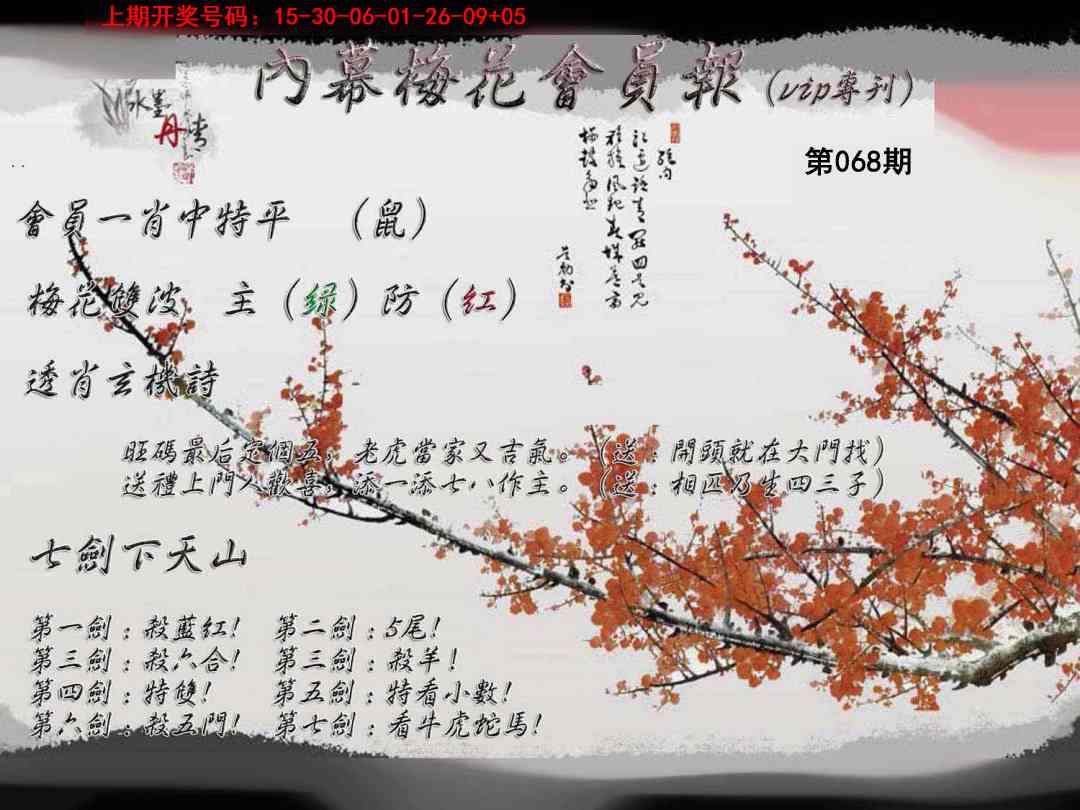 上期开奖号码：15-30-06-01-26-09+05
內幕梅花會員報（vip專刊）
水墨
丹青
第068期
會員一肖中特平 （鼠）
梅花雙波 主（绿）防（红）
透肖玄機詩
旺碼最后定個五，老虎當家又吉氣。（送：開頭就在大門找）
送禮上門人歡喜，添一添七八作主。（送：相匹乃生四三子）
七劍下天山
第一劍：殺藍红！ 第二劍：5尾！
第三劍：殺六合！ 第三劍：殺羊！
第四劍：特雙！ 第五劍：特看小數！
第六劍：殺五門！ 第七劍：看牛虎蛇馬！